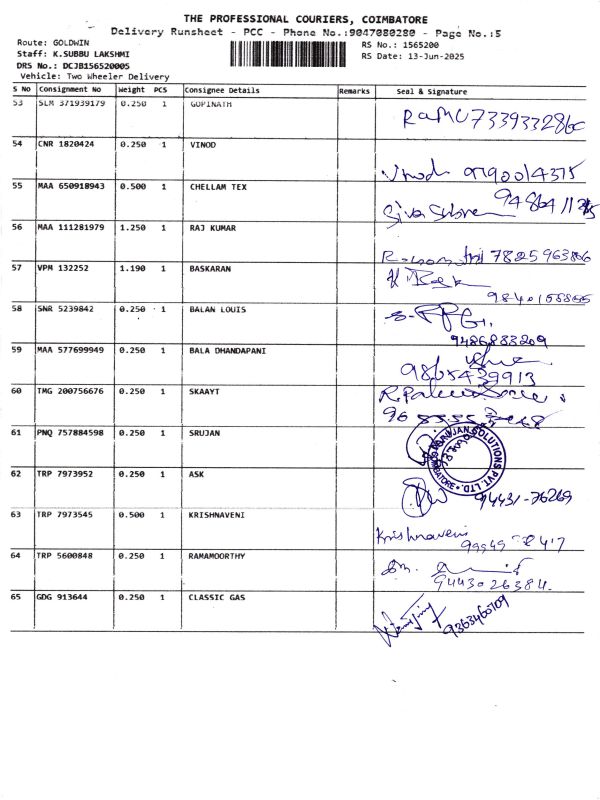 THE PROFESSIONAL COURIERS, COIMBATORE
Delivery Runsheet - PCC - Phone No.:9047080280 - Page No.:5
Route: GOLDWIN
RS No.: 1565200
Staff: K.SUBBU LAKSHMI
RS Date: 13-Jun-2025
DRS No.: DCJB156520005
Vehicle: Two Wheeler Delivery
S No Consignment No Weight PCS Consignee Details Remarks Seal & Signature
53 SLM 371939179 0.250 1 GOPINATH
Ramu 7339332860
54 CNR 1820424 0.250 1 VINOD
Vinod
55 MAA 650918943 0.500 1 CHELLAM TEX
56 MAA 111281979 1.250 1 RAJ KUMAR
7825963806
57 VPM 132252 1.190 1 BASKARAN
9840155855
58 SNR 5239842 0.250 1 BALAN LOUIS
9486833209
59 MAA 577699949 0.250 1 BALA DHANDAPANI
9865439913
60 TMG 200756676 0.250 1 SKAAYT
61 PNQ 757884598 0.250 1 SRUJAN
SRUJAN SOLUTIONS PVT. LTD.
62 TRP 7973952 0.250 1 ASK
94431-76269
63 TRP 7973545 0.500 1 KRISHNAVENI
Krishnaveni
64 TRP 5600848 0.250 1 RAMAMOORTHY
9443026384.
65 GDG 913644 0.250 1 CLASSIC GAS
9363460709